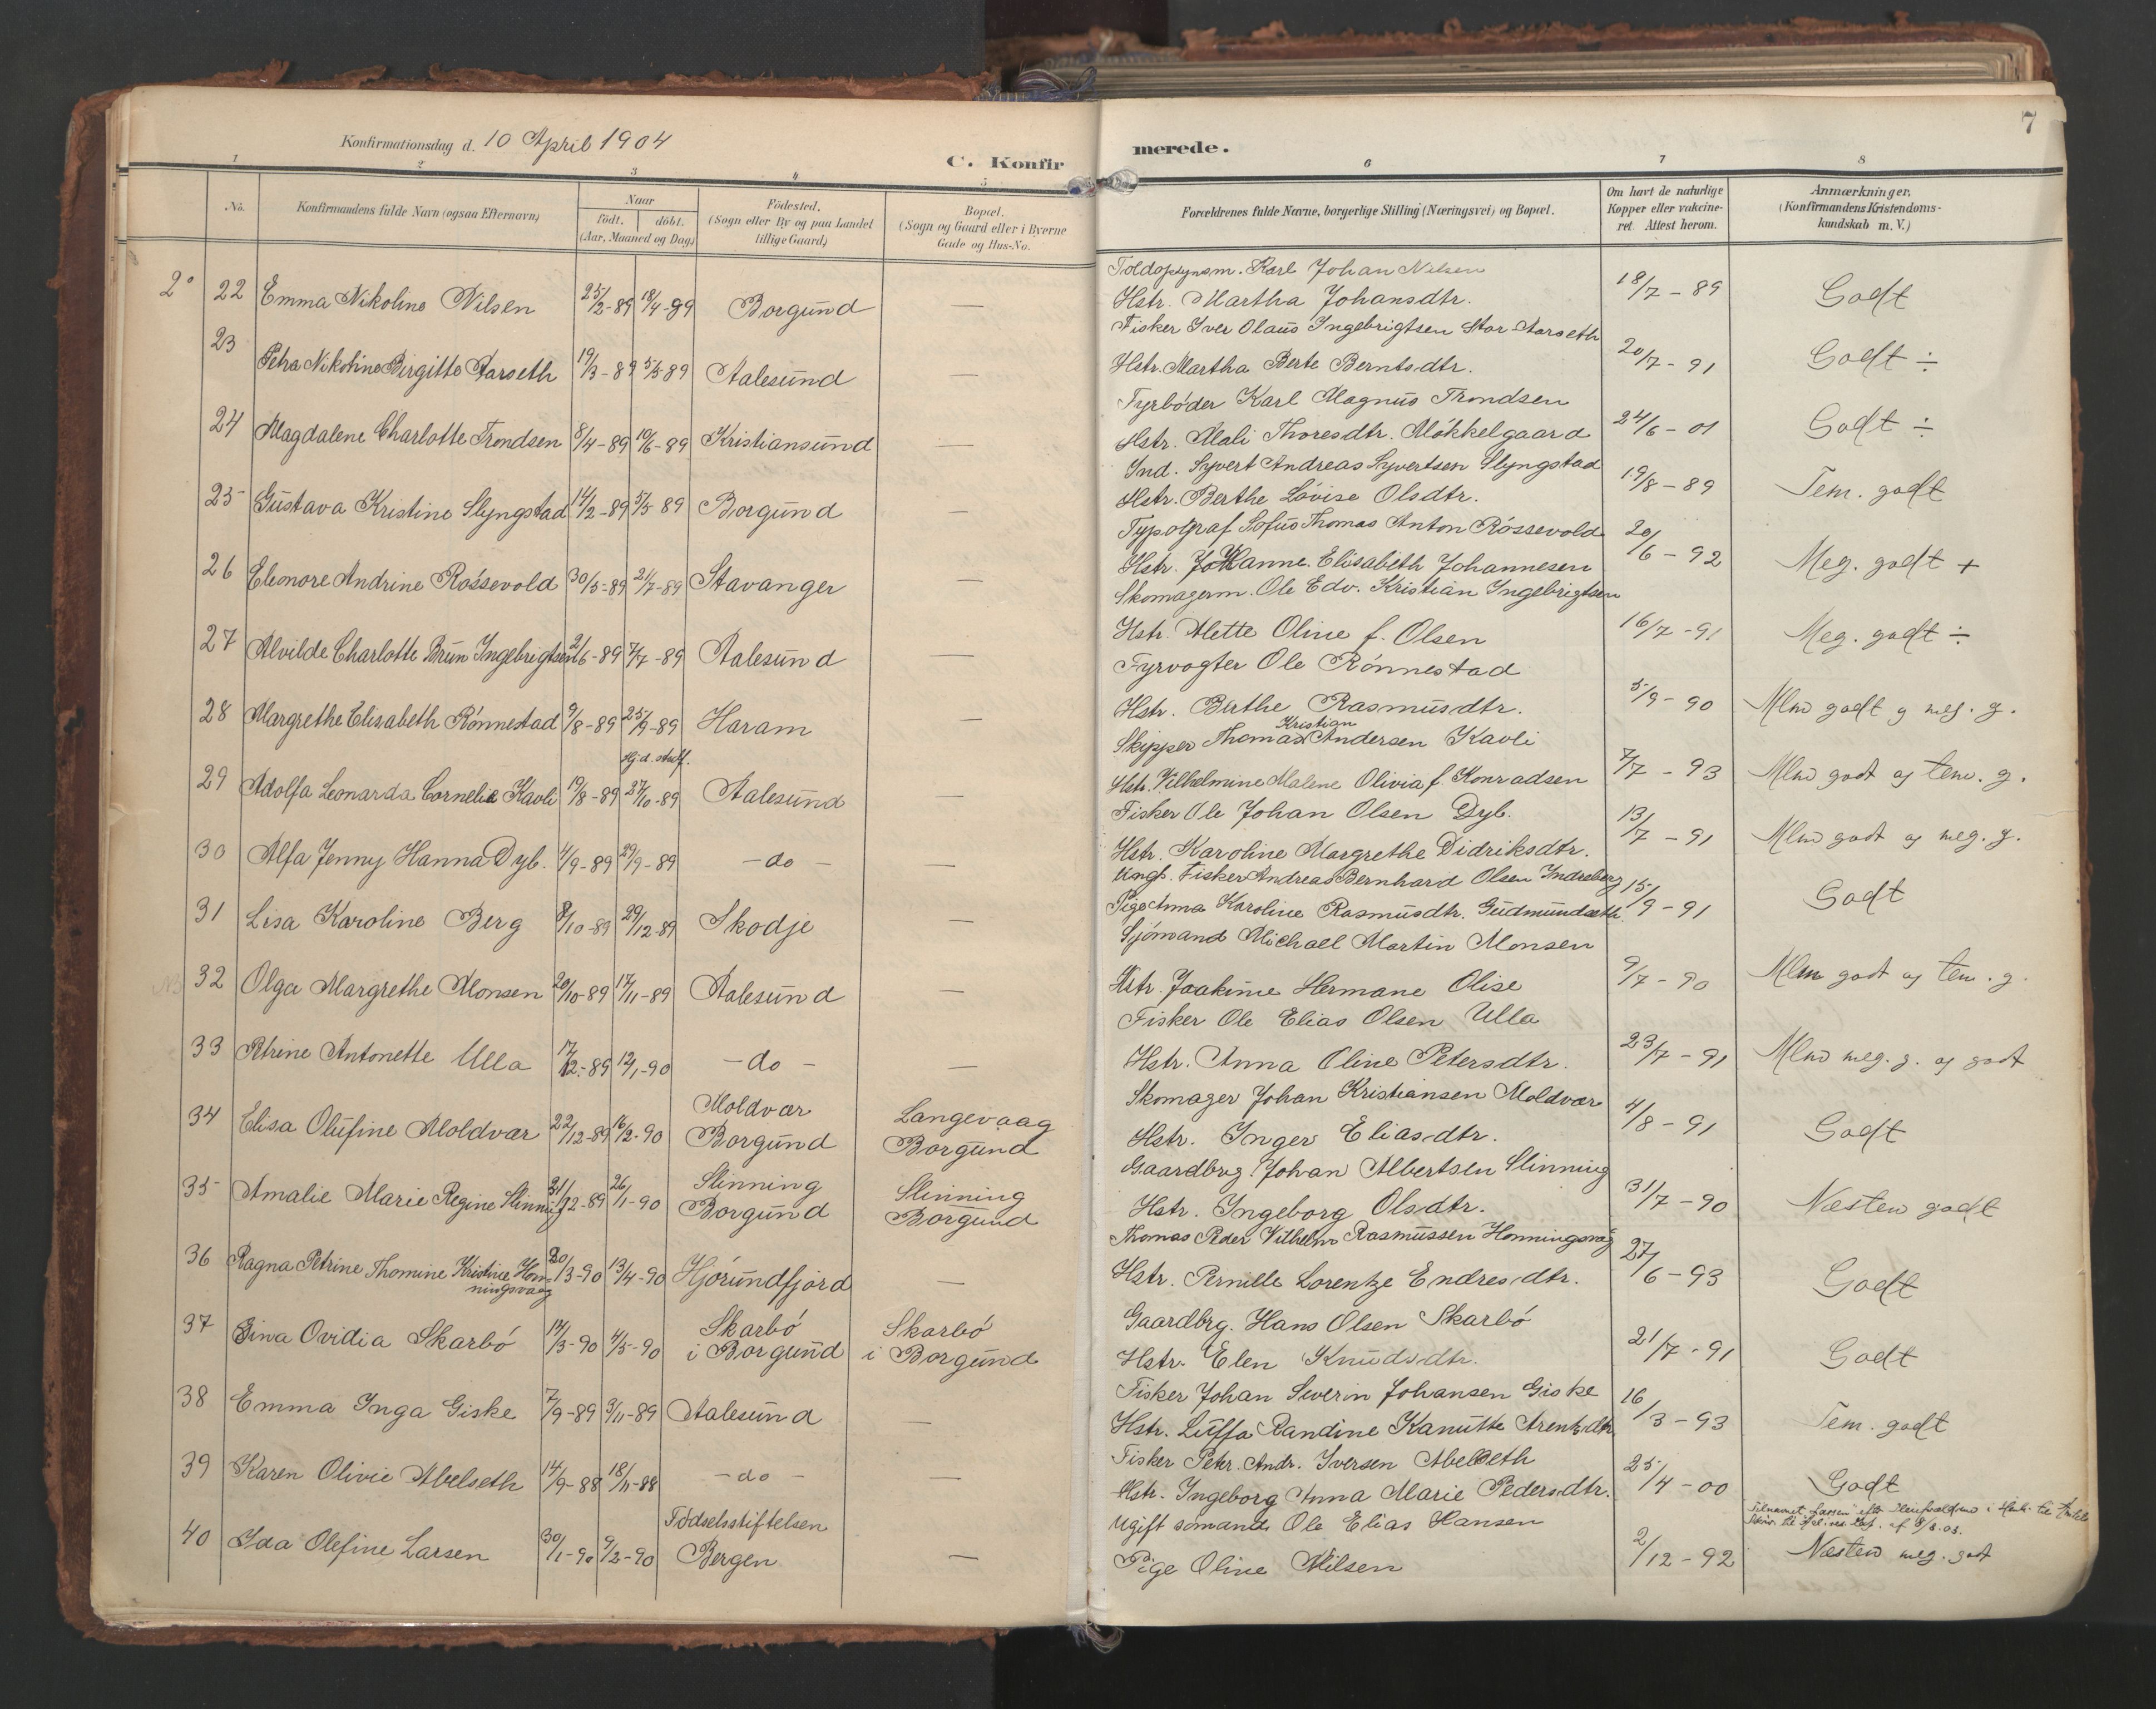 Konfirmationsdag d. 10 April 1904
C. Konfir
merede.
7
1 2 3 4 5 6 7 8
No. Konfirmandens fulde Navn (ogsaa Efternavn)
Naar
födt. döbt.
(Aar, Maaned og Dag)
Födested.
(Sogn eller By og paa Landet
tillige Gaard)
Bopæl.
(Sogn og Gaard eller i Byerne
Gade og Hus-No.
Forældrenes fulde Navne, borgerlige Stilling (Næringsvei) og Bopæl.
Om havt de naturlige
Kopper eller vakcine-
ret. Attest herom.
Anmærkninger,
(Konfirmandens Kristendoms-
kundskab m. V.)
Toldopsynsm. Karl Johan Nilsen
2° 22 Emma Nikoline Nilsen 25/2-89 18/4-89 Borgund — Hstr. Martha Johansdtr. 18/7-89 Godt
Fisker Iver Olaus Ingebrigtsen Stor-Aarseth
23 Petra Nikoline Birgitte Aarseth 19/3-89 5/5-89 Aalesund — Hstr. Martha Berte Berntsdtr. 20/7-91 Godt ÷
Fyrböder Karl Magnus Trondsen
24 Magdalene Charlotte Trondsen 8/4-89 10/6-89 Kristiansund — Hstr. Mali Thoresdtr. Mökkelgaard 24/6-01 Godt ÷
Ind. Syvert Andreas Syvertsen Slyngstad
25 Gustava Kristine Slyngstad 14/2-89 5/5 89 Borgund — Hstr. Berthe Lovise Olsdtr. 19/8-89 Tem. godt
Typograf Sofus Thomas Anton Rössevold
26 Elenore Andrine Rössevold 30/5-89 21/7-89 Stavanger — Hstr. JoHanne Elisabeth Johannesen 20/6-92 Meg. godt +
Skomagerm. Ole Edv. Kristian Ingebrigtsen
27 Alvilde Charlotte Brun Ingebrigtsen 2/6-89 7/7-89 Aalesund — Hstr. Mette Oline f. Olsen 16/7-91 Meg. godt ÷
Fyrvogter Ole Rönnestad
28 Margrethe Elisabeth Rönnestad 9/8-89 25/9-89 Haram — Hstr. Berthe Rasmusdtr. 5/9-90 Mlm godt og meg. g.
Hj.d. stadf.
Kristian
Skipper Thomas Andersen Kavli
29 Adolfa Leonarda Cornelia Kavli 19/8-89 27/10-89 Aalesund — Hstr. Vilhelmine Malene Olivia f. Konradsen 7/7-93 Mlm godt og tem. g.
Fisker Ole Johan Olsen Dyb.
30 Alfa Jenny Hanna Dyb. 4/9-89 29/9-89 -do- — Hstr. Karoline Margrethe Didriksdtr. 13/7-91 Mlm godt og meg. g.
Ungk. Fisker Andreas Bernhard Olsen Indreberg
31 Lisa Karoline Berg 8/10-89 29/12-89 Skodje — Pige Anna Karoline Rasmusdtr. Gudmundseth 15/9-91 Godt
Sjömand Michael Martin Monsen
NB 32 Olga Margrethe Monsen 20/10-89 17/11-89 Aalesund — Hstr. Joakime Hermane Olise 9/7-90 Mlm godt og tem. g.
Fisker Ole Elias Olsen Ulla
33 Petrine Antonette Ulla 17/12-89 12/1-90 -do- — Hstr. Anna Oline Petersdtr. 23/7-91 Mlm meg. g. og godt
Skomager Johan Kristiansen Moldvær
34 Elisa Olufine Moldvær 22/12-89 16/2-90 Moldvær Borgund Langevaag Borgund Hstr. Inger Eliasdtr. 4/8-91 Godt
Gaardbrg. Johan Albertsen Slinning
35 Amalie Marie Regine Slinning 31/12-89 26/1-90 Slinning Borgund Slinning Borgund Hstr. Ingeborg Olsdtr. 31/7-90 Næsten godt
Thomas Peder Vilhelm Rasmussen Honningsvåg
36 Ragna Petrine Thomine Kristine Hon-
ningsvaag 20/3-90 13/4-90 Hjörundfjord — Hstr. Pernille Lorentze Endresdtr. 27/6-93 Godt
Gaardbrg. Hans Olsen Skarbö
37 Sina Ovidia Skarbö 14/3-90 4/5-90 Skarbö i Borgund Skarbö i Borgund Hstr. Elen Knudsdtr. 21/7-91 Godt
Fisker Johan Severin Johansen Giske
38 Emma Inga Giske 7/9-89 3/11-89 Aalesund — Hstr. Luffa Randine Kanutte Arentsdtr. 16/3-93 Tem. godt
Fisker Peter Andr. Iversen Abelseth
39 Karen Olivie Abelseth 14/9-88 18/11-88 -do- — Hstr. Ingeborg Anna Marie Pedersdtr. 25/4-00 Godt
Ugift sömand Ole Elias Hansen
40 Ida Olefine Larsen 30/1-90 9/2-90 Födselsstiftelsen Bergen — Pige Oline Nilsen 2/12-92 Næsten meg. godt